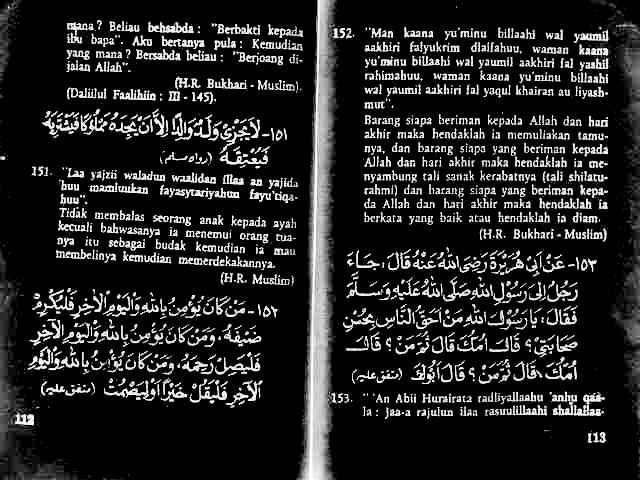 mana? Beliau behsabda : "Berbakti kepada
ibu bapa". Aku bertanya pula : Kemudian
yang mana? Bersabda beliau : "Berjoang di-
jalan Allah".
(H.R. Bukhari - Muslim).
(Daliilul Faalihiin : III - 145).
١٥١- لَا يَجْزِيْ وَلَدٌ وَالِدًا اِلاَّ اَنْ يَجِدَهُ مَمْلُوْكًا فَيَشْتَرِيَهُ
فَيُعْتِقَهُ (رواه مسلم)
151. "Laa yajzii waladun waalidan illaa an yajida
'huu mamluukan fayasytariyahuu fayu'tiqa-
huu".
Tidak membalas seorang anak kepada ayah
kecuali bahwasanya ia menemui orang tua-
nya itu sebagai budak kemudian ia mau
membelinya kemudian memerdekakannya.
(H.R. Muslim)
١٥٢- مَنْ كَانَ يُؤْمِنُ بِاللهِ وَالْيَوْمِ الْاٰخِرِ فَلْيُكْرِمْ
ضَيْفَهُ، وَمَنْ كَانَ يُؤْمِنُ بِاللهِ وَالْيَوْمِ الْاٰخِرِ
فَلْيَصِلْ رَحِمَهُ، وَمَنْ كَانَ يُؤْمِنُ بِاللهِ وَالْيَوْمِ
الْاٰخِرِ فَلْيَقُلْ خَيْرًا اَوْلِيَصْمُتْ (متفق عليه)
112
152. "Man kaana yu'minu billaahi wal yaumil
aakhiri falyukrim dlaifahuu, waman kaana
yu'minu billaahi wal yaumil aakhiri fal yashil
rahimahuu, waman kaana yu'minu billaahi
wal yaumil aakhiri fal yaqul khairan au liyash-
mut".
Barang siapa beriman kepada Allah dan hari
akhir maka hendaklah ia memuliakan tamu-
nya, dan barang siapa yang beriman kepada
Allah dan hari akhir maka hendaklah ia me-
nyambung tali sanak kerabatnya (tali shilatu-
rahmi) dan barang siapa yang beriman kepa-
da Allah dan hari akhir maka hendaklah ia
berkata yang baik atau hendaklah ia diam.
(H.R. Bukhari - Muslim)
١٥٣- عَنْ اَبِيْ هُرَيْرَةَ رَضِيَ اللهُ عَنْهُ قَالَ: جَاءَ
رَجُلٌ اِلَى رَسُوْلِ اللهِ صَلَّى اللهُ عَلَيْهِ وَسَلَّمَ
فَقَالَ: يَا رَسُوْلَ اللهِ مَنْ اَحَقُّ النَّاسِ بِحُسْنِ
صَحَابَتِيْ؟ قَالَ اُمُّكَ قَالَ ثُمَّ مَنْ؟ قَالَ
اُمُّكَ، قَالَ ثُمَّ مَنْ؟ قَالَ اَبُوْكَ (متفق عليه)
153. "'An Abii Hurairata radliyallaahu 'anhu qaa-
la : Jaa-a rajulun ilaa rasuulillaahi shallallaa-
113